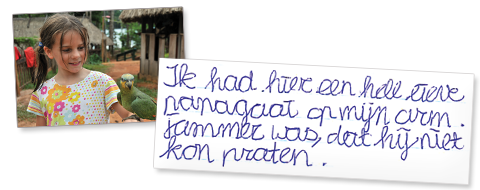 Ik had hier een hele lieve
papagaai op mijn arm.
Jammer was, dat hij niet
kon praten.